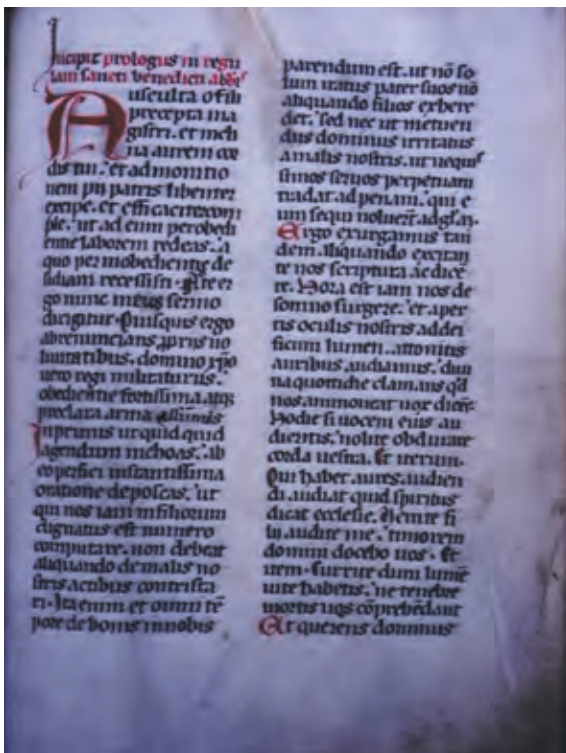 Incipit prologus in regu
lam sancti benedicti abbis
Ausculta o fili
precepta ma
gistri. et incli
na aurem cor
dis tui. et admonitio
nem pii patris libenter
excipe. et efficaciter com
ple. ut ad eum per obedi
entie laborem redeas. a
quo per inobedientie de
sidiam recesseras. Ad te er
go nunc meus sermo
dirigitur. Quisquis ergo
abrenuncians propriis uo
luntatibus. domino xpo
uero regi militaturus.
obedientie fortissima atqz
preclara arma assumis
Inprimis ut quid quid
agendum inchoas. ab
eo perfici instantissima
oratione deposcas. ut
qui nos iam in filiorum
dignatus est numero
computare. non debeat
aliquando de malis no
stris actibus contrista
ri. Ita enim et omni te
pore de bonis in nobis
parendum est. ut nō so
lum iratus pater suos nō
aliquando filios exhere
det. sed nec ut metuen
dus dominus irritatus
a malis nostris. ut nequis
simos seruos perpetuam
tradat ad penam. qui e
um sequi noluerīt ad glam.
Ergo exurgamus tan
dem aliquando excitan
te nos scriptura ac dicē
te. Hora est iam nos de
somno surgere. et aper
tis oculis nostris ad dei
ficum lumen. attonitis
auribus audiamus. diui
na quottidie clamans qd
nos ammoneat uox dicēs.
Hodie si uocem eius au
dieritis. nolite obdurare
corda uestra. Et iterum.
Qui habet aures audien
di audiat quid spiritus
dicat ecclesiis. Uenite fi
lii audite me. timorem
domini docebo uos. Et
item. Currite dum lumē
uite habetis. ne tenebre
mortis uos cōprehēdant
Et querens dominus